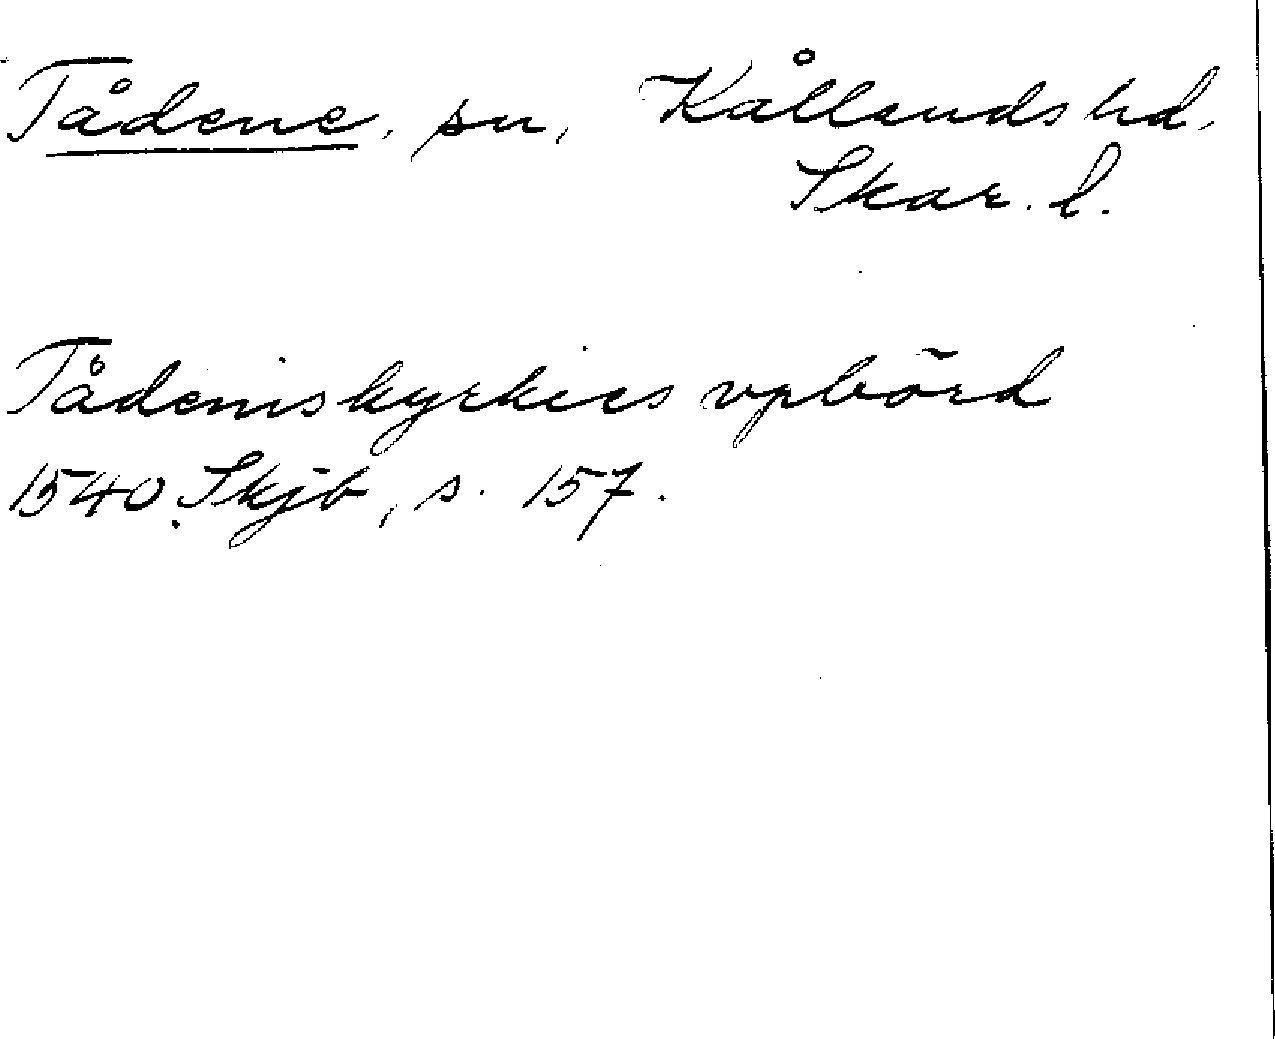 Tådene, sn, Kållands hd,
Skar. l.
Tådeniskyrkies vpbörd
1540. Skjb, s. 157.